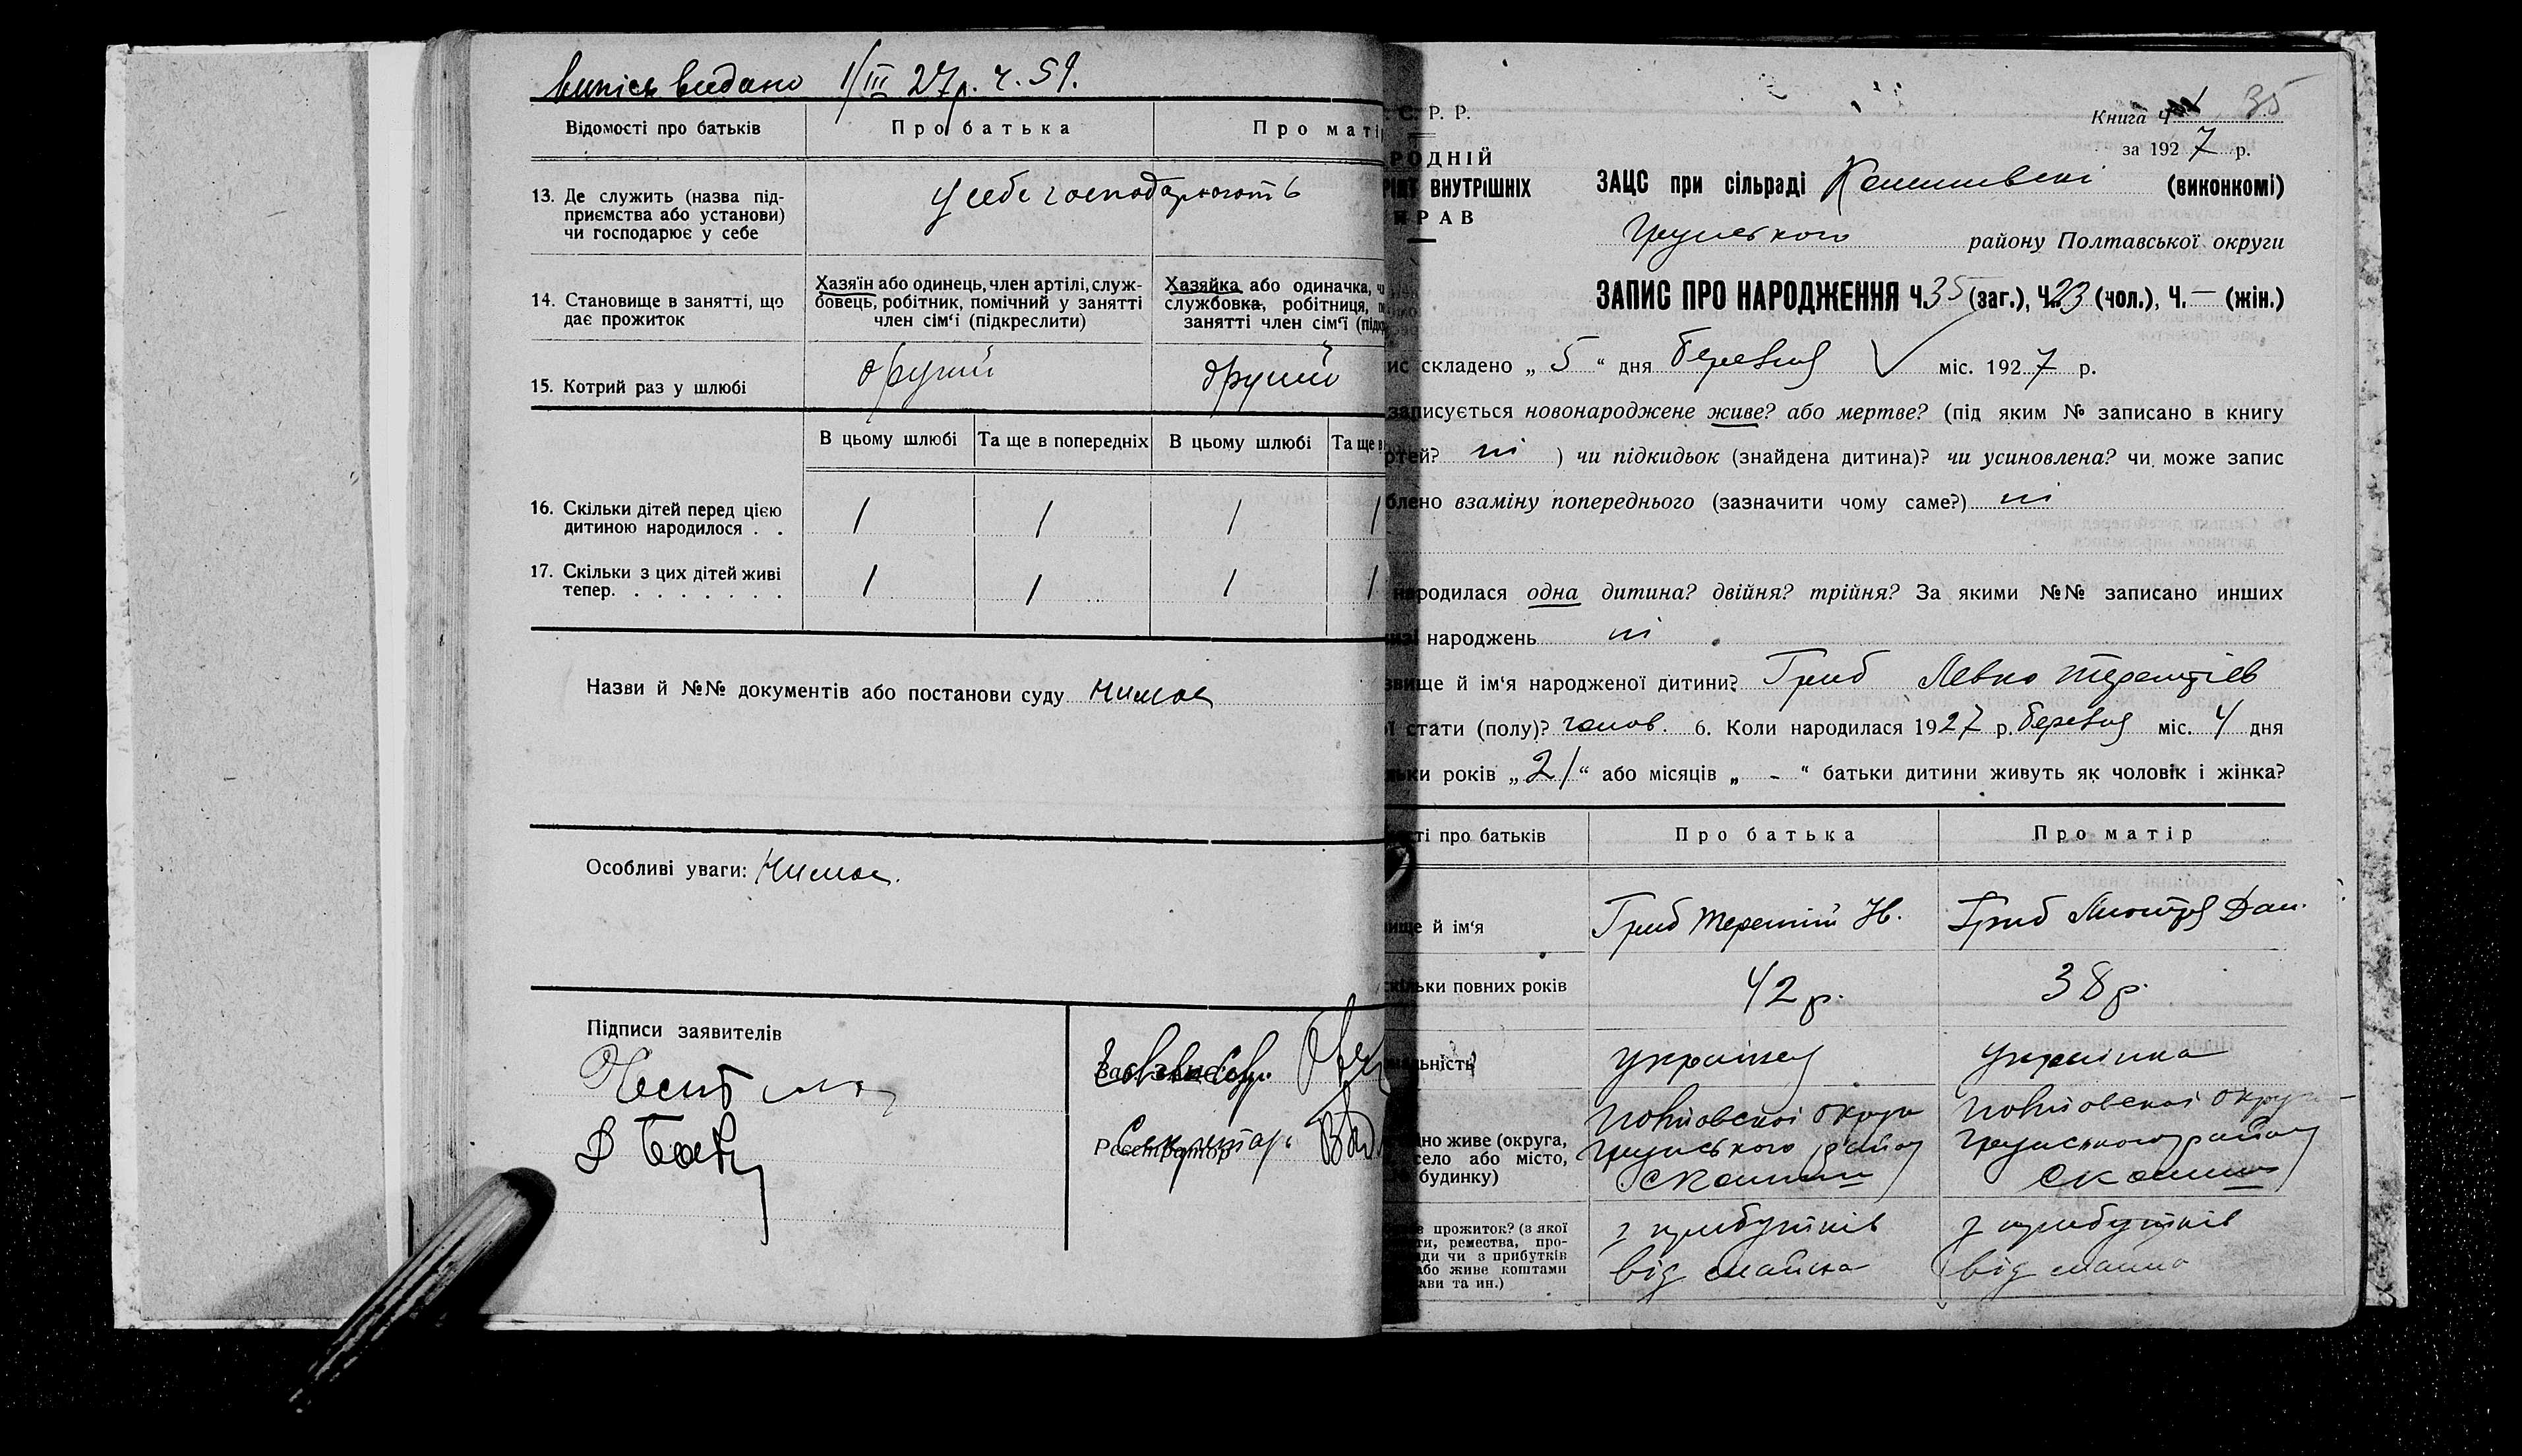 випісь видано 1/III 27 р. ч. 59.
Відомості про батьків Про батька Про маті
13. Де служить (назва під-
приємства або установи)
чи господарює у себе
у себе господарюють
14. Становище в занятті, що
дає прожиток
Хазяїн або одинець, член артілі, служ-
бовець, робітник, помічний у занятті
член сім'ї (підкреслити)
Хазяйка або одиначка, ч
службовка, робітниця, п
занятті член сім'ї (підк
15. Котрий раз у шлюбі другий другий
В цьому шлюбі Та ще в попередніх В цьому шлюбі Та ще в
16. Скільки дітей перед цією
дитиною народилося . . 1 1 1 1
17. Скільки з цих дітей живі
тепер. . . . . . . . 1 1 1 1
Назви й №№ документів або постанови суду Нимає
Особливі уваги: Нимає.
Підписи заявителів
Зав. загсу
Секретарь
Реєстратор
С. Р. Р.
РОДНІЙ
РІЯТ ВНУТРІШНІХ
ПРАВ
Книга Ч 35
за 1927 р.
ЗАЦС при сільраді (виконкомі)
Грунського району Полтавської округи
ЗАПИС ПРО НАРОДЖЕННЯ Ч. 35 (заг.), Ч. 23 (чол.), Ч. — (жін.)
ис складено „ 5 “ дня березня міс. 1927 р.
записується новонароджене живе? або мертве? (під яким № записано в книгу
ртей? ні ) чи підкидьок (знайдена дитина)? чи усиновлена? чи може запис
блено взаміну попереднього (зазначити чому саме?) ні
народилася одна дитина? двійня? трійня? За якими №№ записано инших
народжень ні
звище й ім'я народженої дитини? Гриб Левко Терентіев
ї стати (полу)? чолов. 6. Коли народилася 1927 р. березня міс. 4 дня
льки років „ 21 “ або місяців „ - “ батьки дитини живуть як чоловік і жінка?
ті про батьків Про батька Про матір
вище й ім'я Гриб Терентій Гриб
скільки повних років 42 р. 38 р.
льність українец українка
но живе (округа,
село або місто,
будинку)
Полтавської округи
Грунського району
Полтавської округи
Грунського району
прожиток? (з якої
ти, ремества, про-
ди чи з прибутків
або живе коштами
ави та ин.)
з прибутків
від майна
з прибутків
від майна